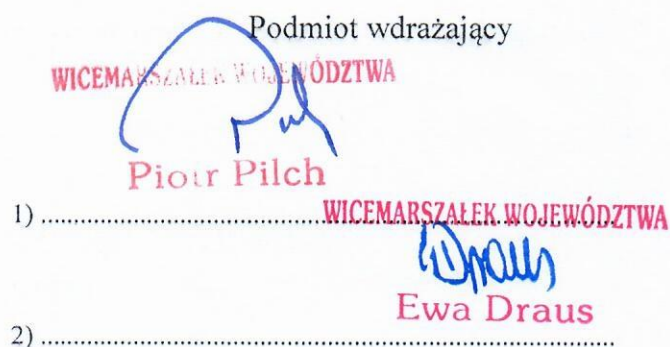 Podmiot wdrażający
WICEMARSZAŁEK WOJEWÓDZTWA
Piotr Pilch
1) ........................................ WICEMARSZAŁEK WOJEWÓDZTWA
Draus
Ewa Draus
2) ........................................